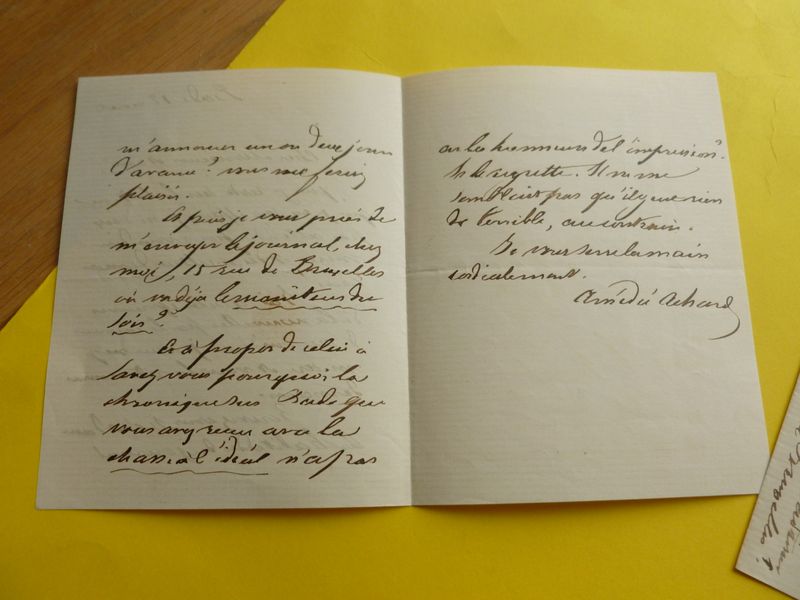 m'annoncer un ou deux jours
d'avance? vous me feriez
plaisir.
Et puis je vous prierai de
m'envoyer le journal, chez
moi, 15 rue de Bruxelles
où va déjà le moniteur du
soir?
Et à propos de celui-ci
savez vous pourquoi la
chronique sur Bade que
vous avez reçue avec la
chasse à l'idéal n'a pas
eu les honneurs de l'impression?
Je le regrette. Il ne me
semblait pas qu'il y eut rien
de terrible, au contraire.
Je vous serre la main
cordialement.
Amédée Achard
Bruxelles?